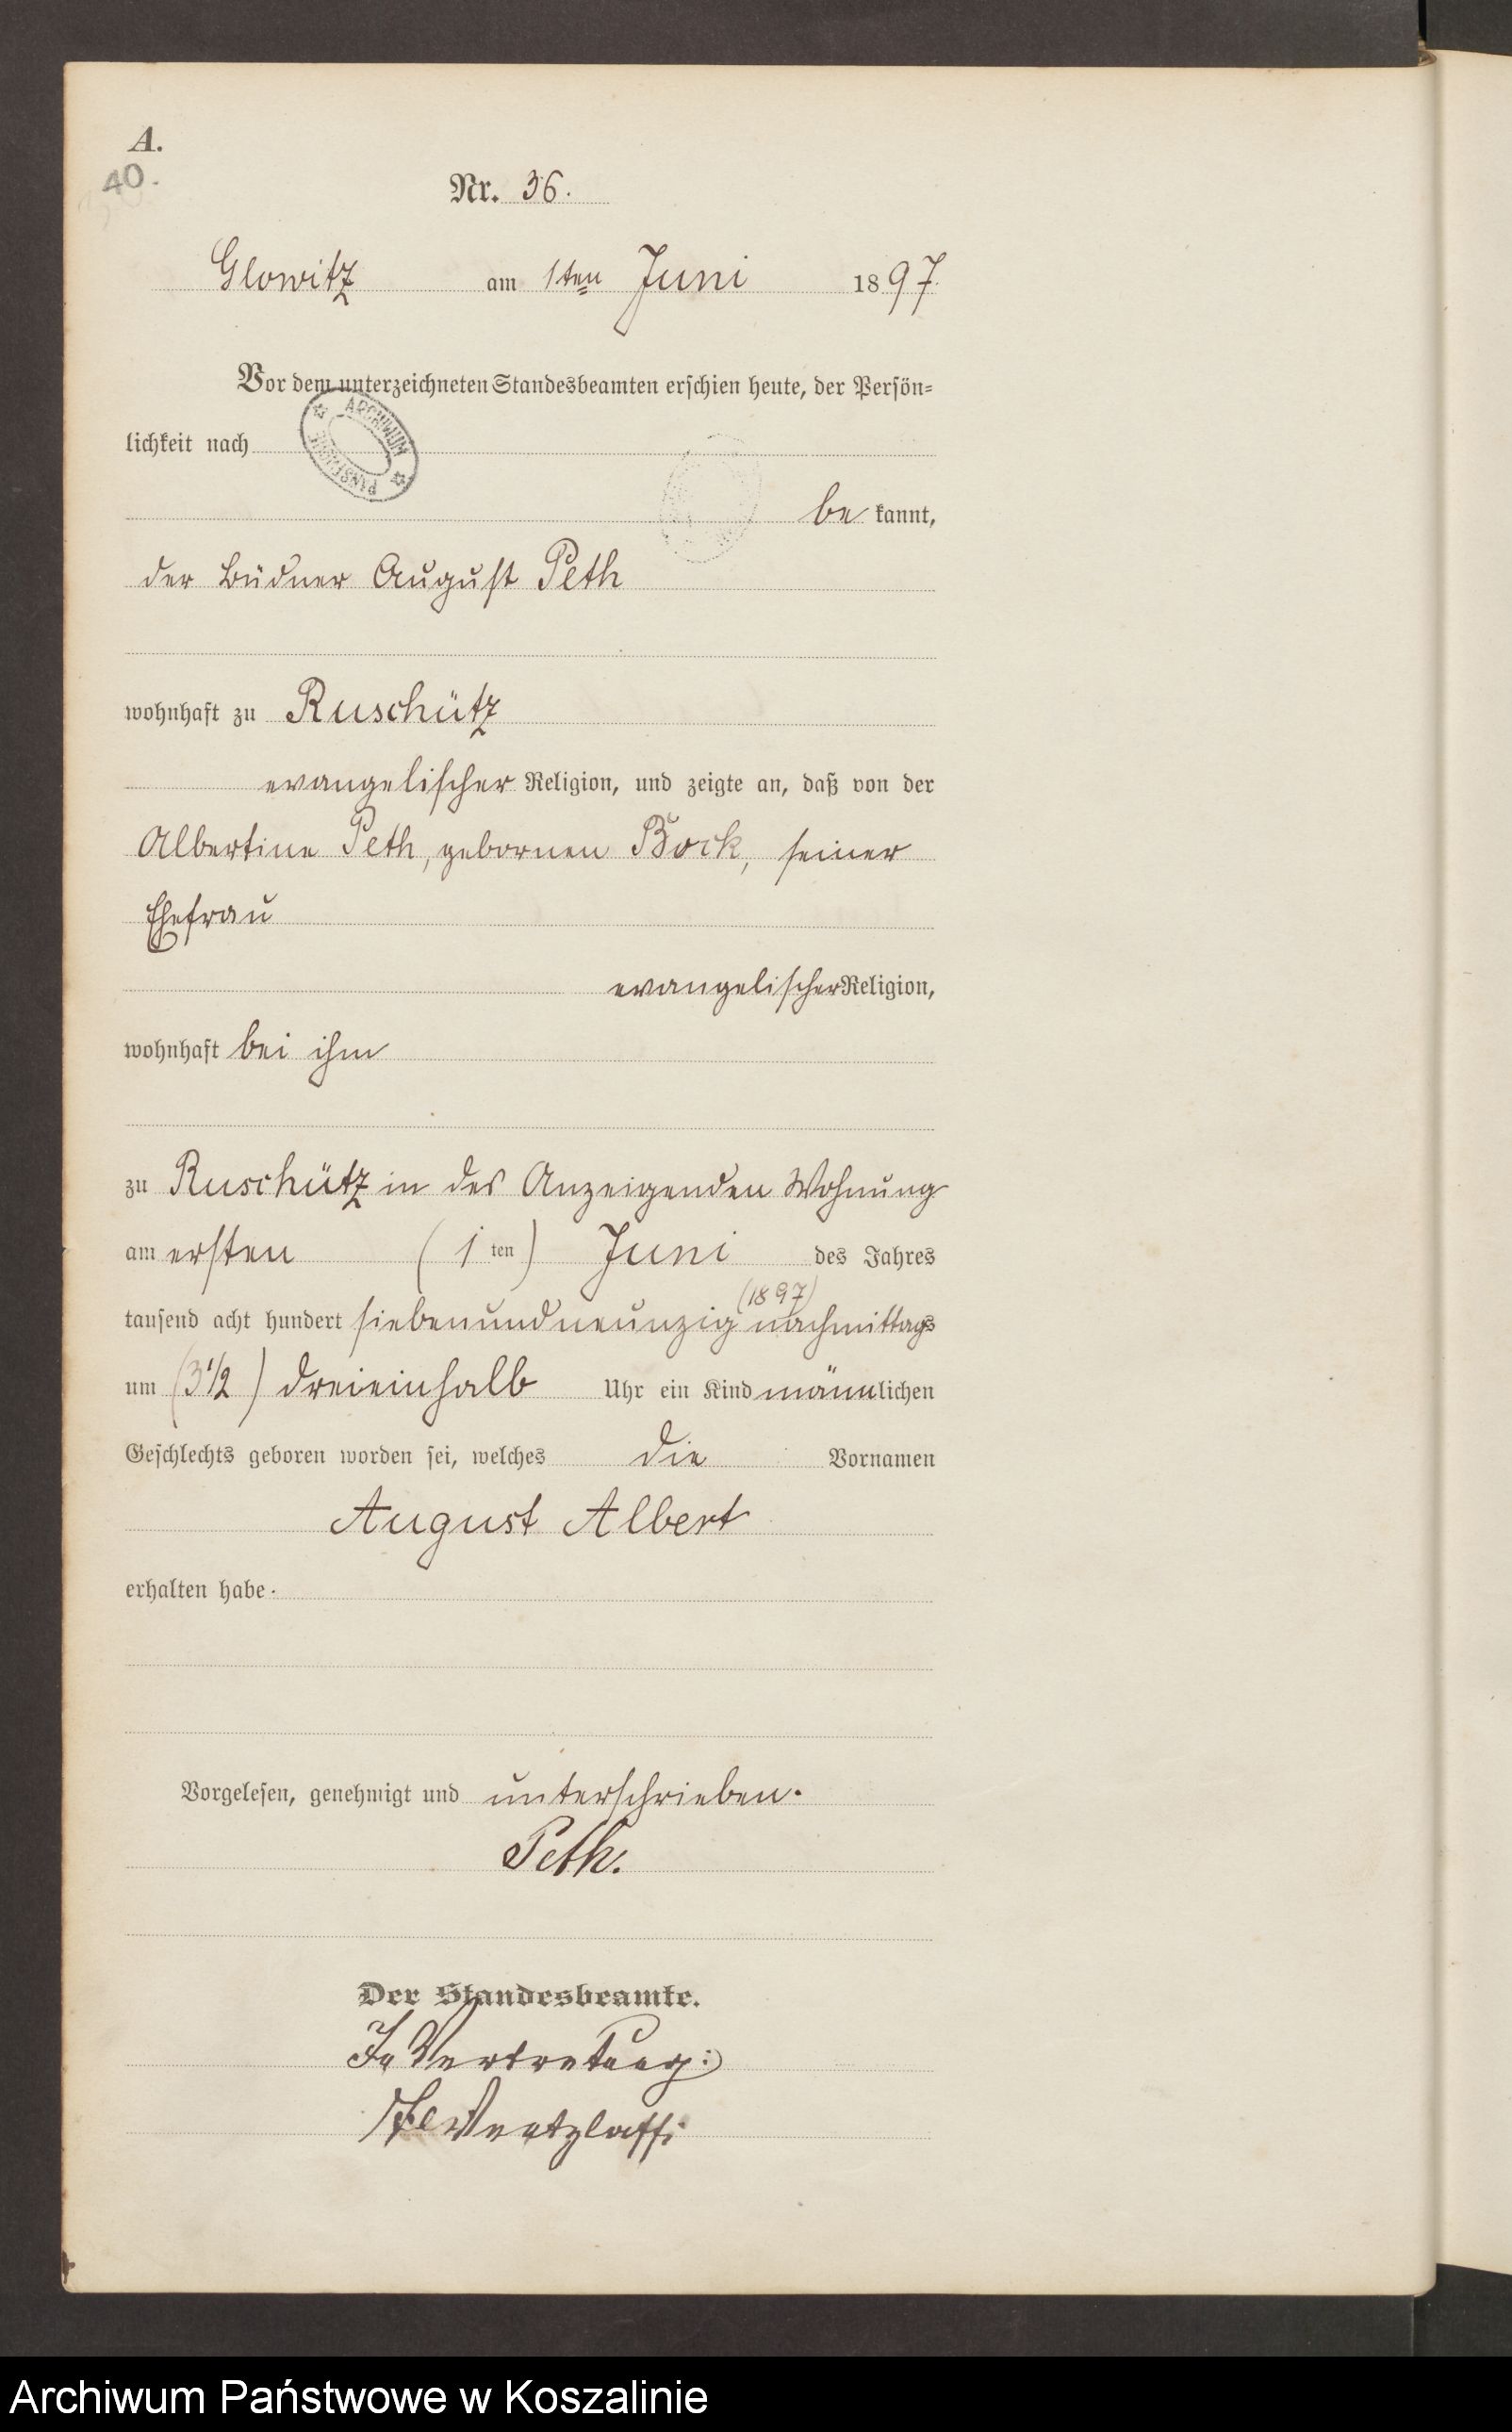 A.
40.
Nr. 36.
Glowitz am 1ten Juni 1897.
Vor dem unterzeichneten Standesbeamten erschien heute, der Persön=
lichkeit nach
ARCHIWUM PAŃSTWOWE
be kannt,
der Büdner August Peth
wohnhaft zu Ruschütz
evangelischer Religion, und zeigte an, daß von der
Albertine Peth, gebornen Bock, seiner
Ehefrau
evangelischer Religion,
wohnhaft bei ihm
zu Ruschütz in des Anzeigenden Wohnung
am ersten (1 ten) Juni des Jahres
(1897)
tausend acht hundert siebenundneunzig nachmittags
um (3 1/2) dreieinhalb Uhr ein Kind männlichen
Geschlechts geboren worden sei, welches die Vornamen
August Albert
erhalten habe.
Vorgelesen, genehmigt und unterschrieben.
Peth.
Der Standesbeamte.
In Vertretung:
Archiwum Państwowe w Koszalinie